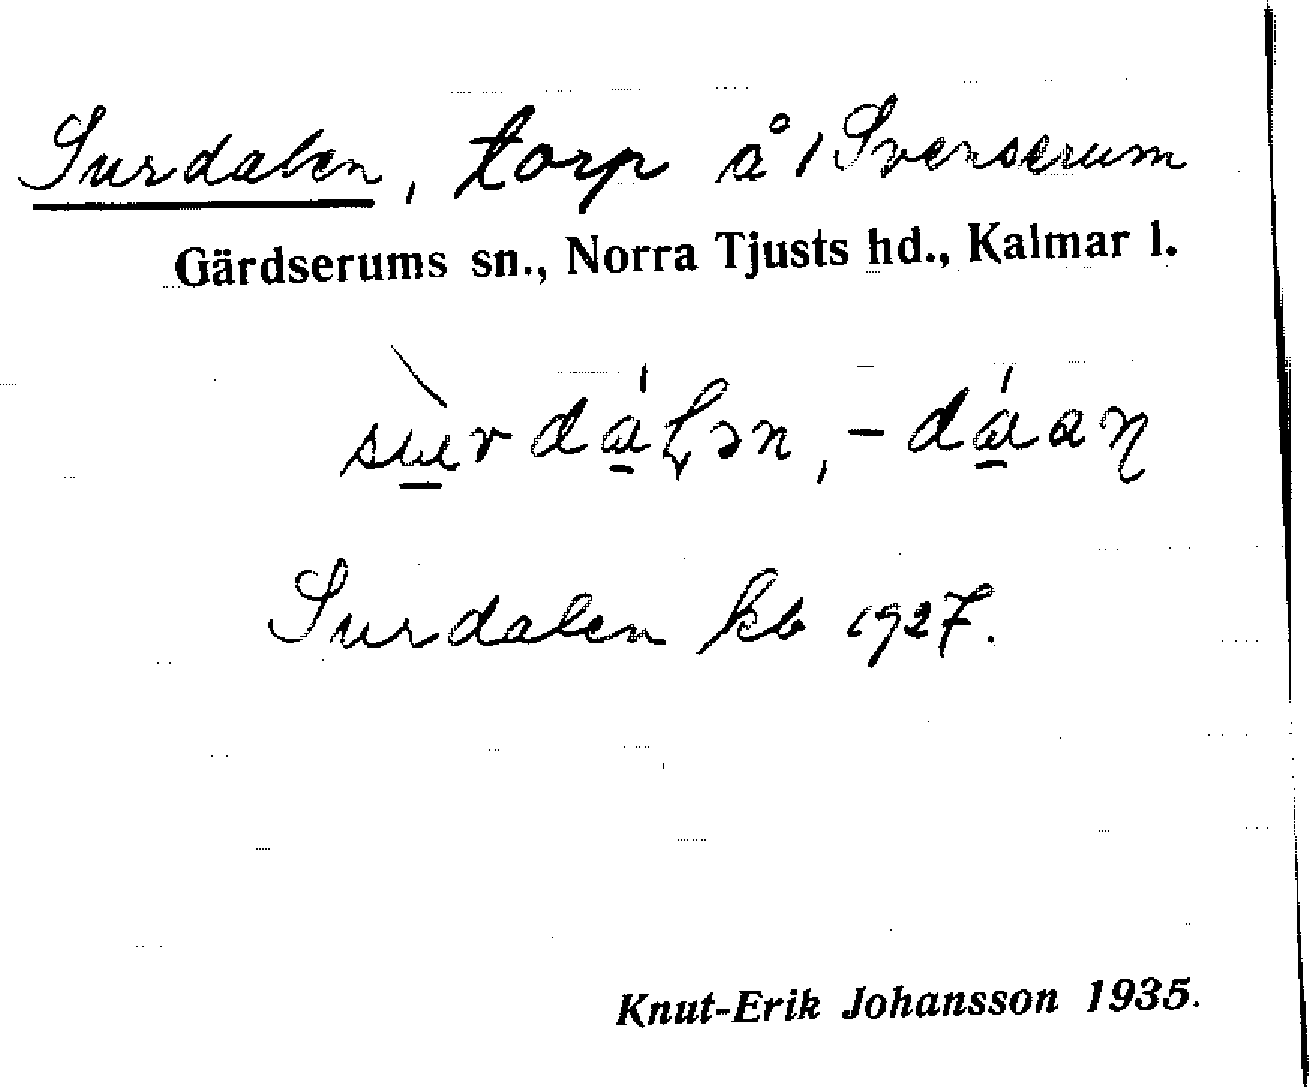 Surdalen, torp å 1 Svenserum
Gärdserums sn., Norra Tjusts hd., Kalmar l.
sù̲rdá̲lən, -dá̲aŋ
Surdalen kb 1927.
Knut-Erik Johansson 1935.